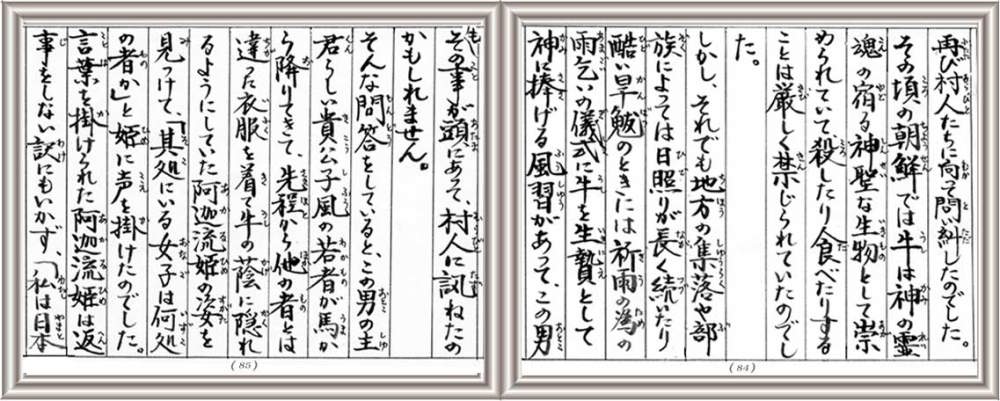 再び村人たちに向って問い糾したのでした。
その頃の朝鮮では牛は神の霊
魂の宿る神聖な生物として崇
められていて、殺したり食べたりする
ことは厳しく禁じられていたのでし
た。
しかし、それでも地方の集落や部
族によっては日照りが長く続いたり
酷い旱魃のときには祈雨の為の
雨乞いの儀式に牛を生贄として
神に捧げる風習があって、この男
(84)
もその事が頭にあって、村人に訊ねたの
かもしれません。
そんな問答をしていると、この男の主
君らしい貴公子風の若者が馬か
ら降りてきて、先程から他の者とは
違った衣服を着て牛の蔭に隠れ
るようにしていた阿迦流姫の姿を
見つけて、「其処にいる女子は何処
の者か」と姫に声を掛けたのでした。
言葉を掛けられた阿迦流姫は返
事をしない訳にもいかず、「私は日本
(85)